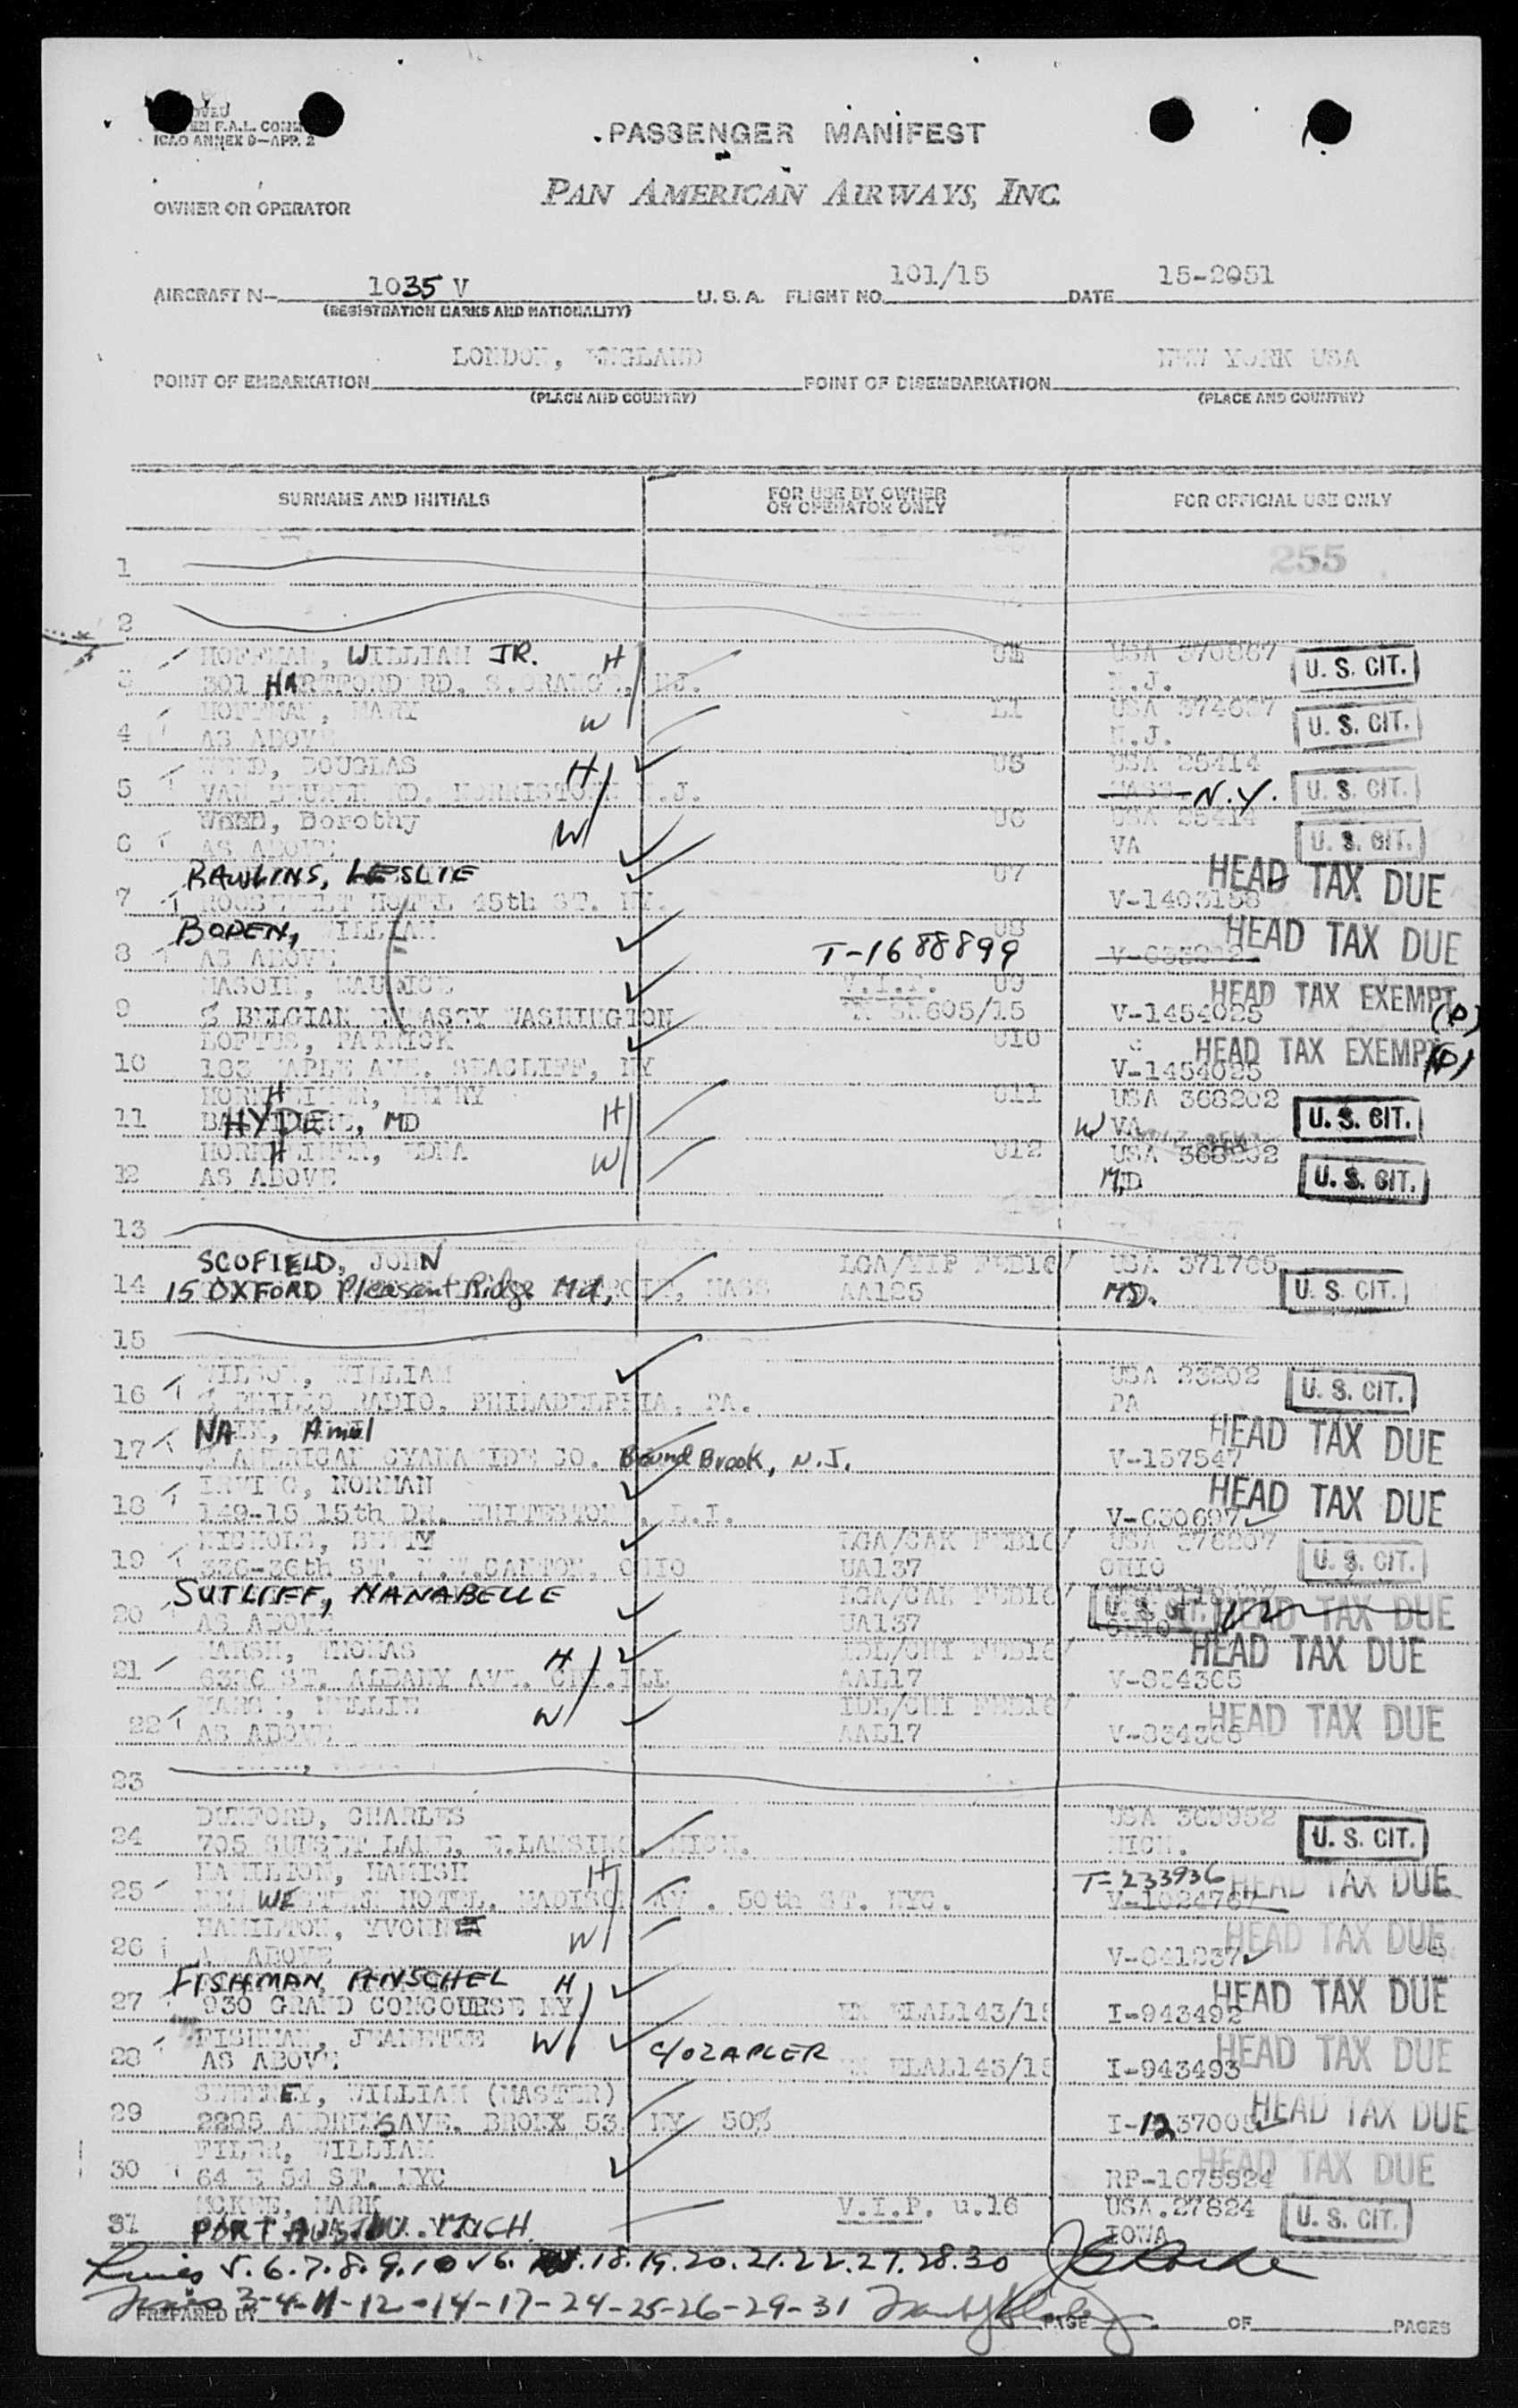 F.A.L.
ICAO ANNEX 9—APP. 2
PASSENGER MANIFEST
PAN AMERICAN AIRWAYS, INC.
OWNER OR OPERATOR
AIRCRAFT N— 1035 V U. S. A. FLIGHT NO. 101/15 DATE 15-2-51
(REGISTRATION MARKS AND NATIONALITY)
POINT OF EMBARKATION LONDON, ENGLAND POINT OF DISEMBARKATION NEW YORK USA
(PLACE AND COUNTRY) (PLACE AND COUNTRY)
SURNAME AND INITIALS FOR USE BY OWNER OR OPERATOR ONLY FOR OFFICIAL USE ONLY
1 255
2
HOFFMAN, WILLIAM JR. H USA U. S. CIT.
3 301 HARTFORD RD. S.ORANGE, NJ. N.J.
HOFFMAN, MARY W USA U. S. CIT.
4 AS ABOVE N.J.
DOUGLAS H U5 USA 25414
5 VAN BEUREN RD. MORRISTOWN N.J. MASS. N.Y. U. S. CIT.
WEED, Dorothy W U6 USA 25414
6 AS ABOVE VA U. S. CIT.
RAWLINS, LESLIE U7 HEAD TAX DUE
7 ROOSEVELT HOTEL 45th ST. NY. V-1403158
BODEN, WILLIAM U8 HEAD TAX DUE
8 AS ABOVE T-1688899
MAURICE V.I.P. U9 HEAD TAX EXEMPT
9 % BELGIAN EMBASSY WASHINGTON SN605/15 V-1454025 (D)
LOFTUS, PATRICK U10 HEAD TAX EXEMPT
10 183 MAPLE AVE. SEACLIFF, NY V-1454025 (D)
HENRY H U11 USA 368202
11 HYDE, MD W VA U. S. CIT.
EDNA W U12 USA 368202
12 AS ABOVE MD U. S. CIT.
13
SCOFIELD, JOHN USA 371765
14 15 OXFORD Pleasant Ridge Md, MASS AA125 MD. U. S. CIT.
15
WILSON, WILLIAM USA 23202
16 % PHILCO RADIO, PHILADELPHIA, PA. PA U. S. CIT.
NAIK, Amul HEAD TAX DUE
17 % AMERICAN CYANAMIDE CO. Bound Brook, N.J. V-157547
IRVING, NORMAN HEAD TAX DUE
18 149-15 15th DR. WHITESTONE, L.I. V-630697
NICHOLS, BETTY LGA/CAK FEB16/ USA
19 36th ST. N.W. CANTON, OHIO UA137 OHIO U. S. CIT.
SUTLIFF, NANABELLE LGA/CAK FEB16/ U. S. CIT. HEAD TAX DUE
20 AS ABOVE UA137
MARSH, THOMAS H IDL/CHI FEB16/ HEAD TAX DUE
21 ST. ALBANY AVE. CHI.ILL AAL17 V-834365
MARSH, NELLIE W IDL/CHI FEB16/ HEAD TAX DUE
22 AS ABOVE AAL17 V-834366
23
CHARLES
24 705 SUNSET LANE, E.LANSING, MICH. MICH. U. S. CIT.
HAMILTON, HAMISH H T-233936 HEAD TAX DUE
25 NEW WESTERN HOTEL. MADISON AV. 50th ST. NYC. V-1024767
HAMILTON, YVONNE W HEAD TAX DUE
26 AS ABOVE V-841237
FISHMAN, HENSCHEL H HEAD TAX DUE
27 930 GRAND CONCOURSE NY. ELAL143/15 I-943492
FISHMAN, JEANETTE W c/o ZAPLER HEAD TAX DUE
28 AS ABOVE ELAL143/15 I-943493
SWEENEY, WILLIAM (MASTER) HEAD TAX DUE
29 2285 ANDREWS AVE. BRONX 53 NY 50% I-1237005
WILLIAM HEAD TAX DUE
30 64 E 54 ST. NYC RP-1675524
MCKEE, MARK V.I.P. u.16 USA.27824
31 PORT AUSTIN. MICH. IOWA U. S. CIT.
5.6.7.8.9.10 16. 18.19.20.21.22.27.28.30
3-4-11-12-14-17-24-25-26-29-31
PREPARED BY PAGE OF PAGES